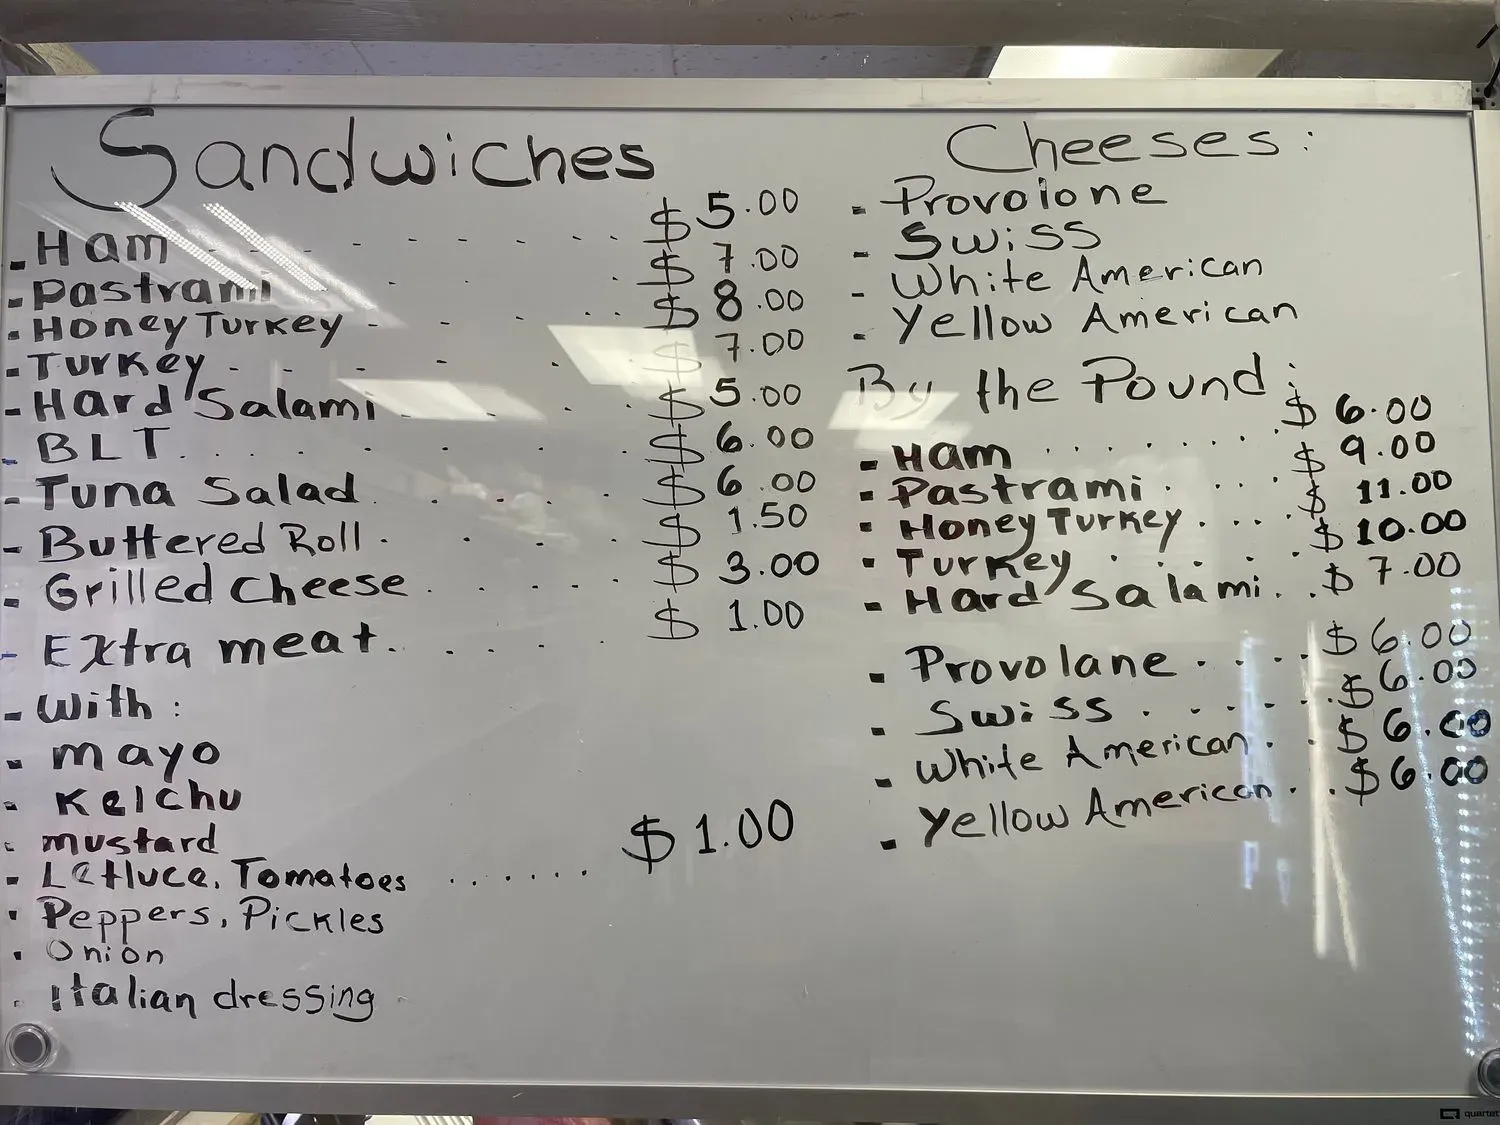 Sandwiches
- Ham - - - - - - - $ 5.00
- Pastrami - - - $ 7.00
- Honey Turkey - - - - $ 8.00
- Turkey - - - - - $ 7.00
- Hard Salami - - - - $ 5.00
- BLT . . . . . . . $ 6.00
- Tuna Salad . . . . . $ 6.00
- Buttered Roll . . . . . $ 1.50
- Grilled Cheese . . . . . $ 3.00
- Extra meat . . . . . $ 1.00
- With :
- mayo
- Kelchu
- mustard
- Lettuce, Tomatoes . . . . . . $ 1.00
- Peppers, Pickles
- Onion
- Italian dressing
Cheeses :
- Provolone
- Swiss
- White American
- Yellow American
By the Pound :
- Ham . . . . . . . $ 6.00
- Pastrami . . . . $ 9.00
- Honey Turkey . . . . $ 11.00
- Turkey . . . . . $ 10.00
- Hard Salami . . . $ 7.00
- Provolane . . . . . $ 6.00
- Swiss . . . . . . $ 6.00
- White American . . $ 6.00
- Yellow American . . . $ 6.00
quartet